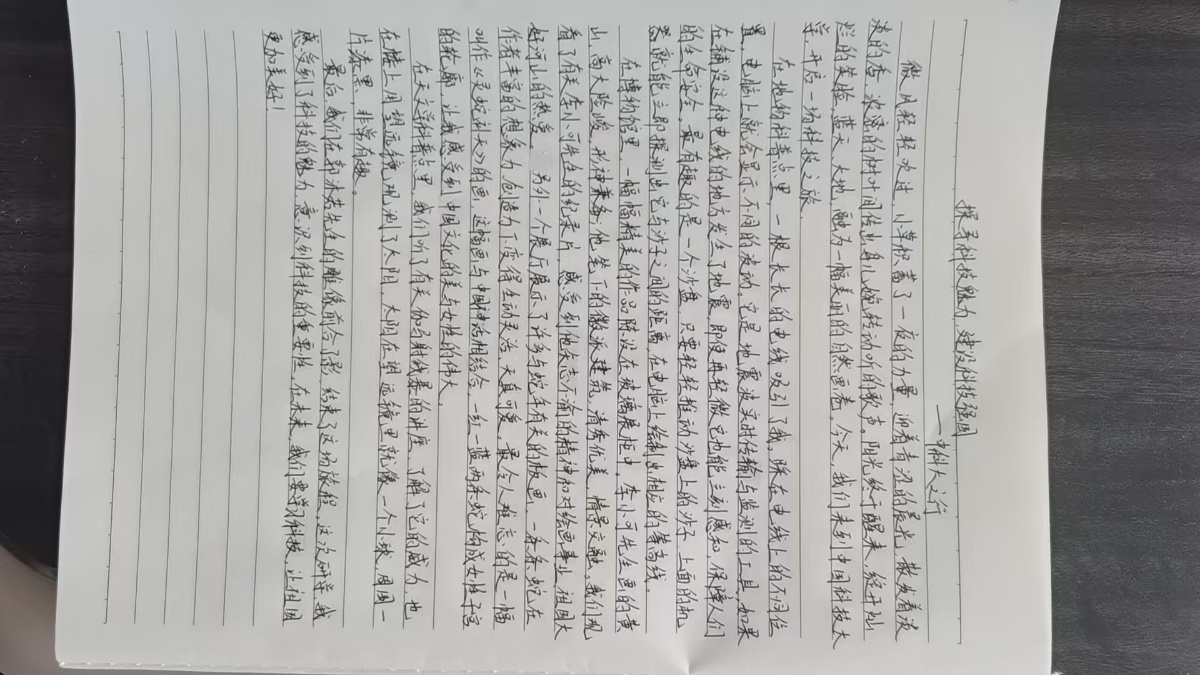 探寻科技魅力,建设科技强国
——中科大之行
微风轻轻吹过,小草积蓄了一夜的力量,迎着青涩的晨光,散发着淡
淡的香,浓密的树叶间传出鸟儿婉转动听的歌声。阳光终于醒来,绽开灿
烂的笑脸,蓝天、大地,融为一幅美丽的自然画卷,今天,我们来到中国科技大
学,开启一场科技之旅。
在地的科普点里,一根长长的电线吸引了我,踩在电线上的不同位
置,电脑上就会显示不同的波动,它是地震波实时传输与监测的工具,如果
在铺设这种电线的地方发生了地震,即使再轻微它也能立刻感知,保障人们
的生命安全,最有趣的是一个沙盘,只要轻轻推动沙盘上的沙子,上面的机
器就能立即探测出它与沙子之间的距离,在电脑上绘制出相应的等高线。
在博物馆里,一幅幅精美的作品陈设在玻璃展柜中。李小可先生画的黄
山,高大险峻,形神兼备,他笔下的徽派建筑,清秀优美,情景交融。我们观
看了有关李小可先生的纪录片,感受到他矢志不渝的精神和对绘画事业、祖国大
好河山的热爱。另外一个展厅展示了许多与蛇年有关的版画,一条条蛇在
作者丰富的想象力、创造力下变得生动灵活、天真可爱,最令人难忘的是一幅
叫作《灵蛇补天》的画,这幅画与中国神话相结合,一红一蓝两条蛇构成女性子宫
的轮廓,让我感受到中国文化的美与女性的伟大。
在天文学科普点里,我们听了有关伽马射线暴的讲座,了解了它的威力,也
在楼上用望远镜观测了太阳,太阳在望远镜里就像一个小球,周围一
片漆黑,非常有趣。
最后,我们在郭沫若先生的雕像前合了影,结束了这场旅程,这次研学,我
感受到了科技的魅力,意识到科技的重要性,在未来,我们要学习科技,让祖国
更加美好!